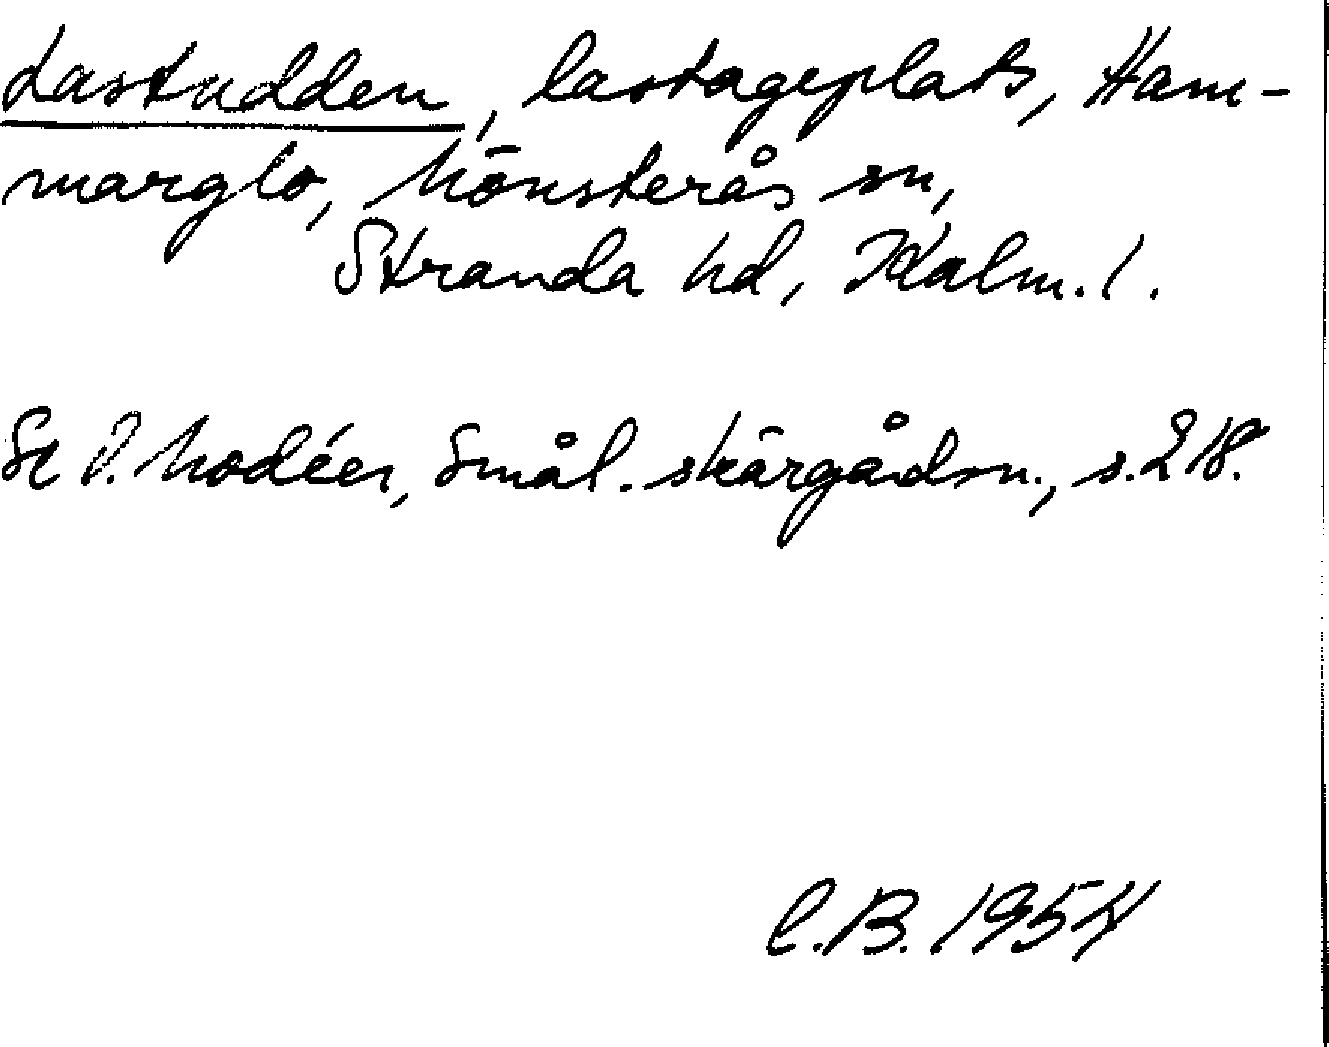 Lastudden, lastageplats, Ham-
marglo, Mönsterås sn,
Stranda hd, Kalm. l.
Se I. Modéer, Smål. skärgådsn., s. 218.
C.B. 1954